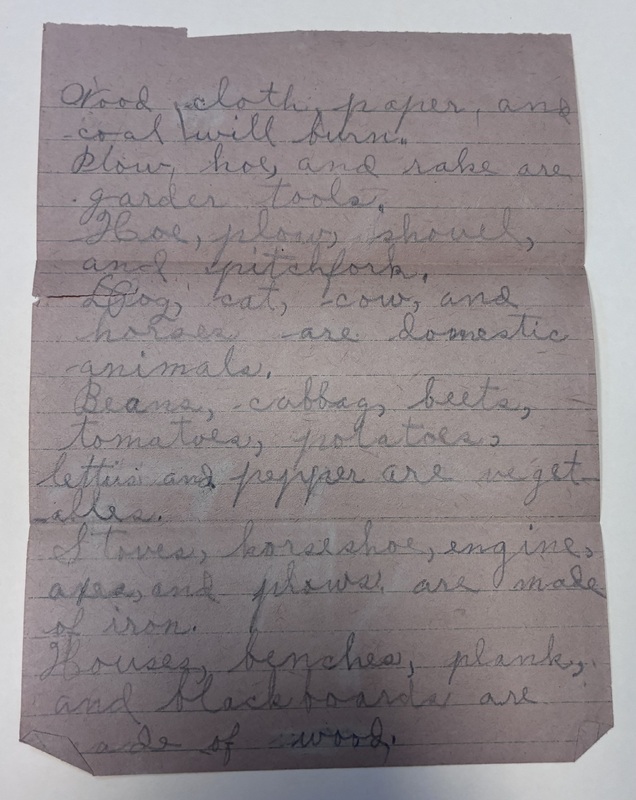 Wood, cloth, paper, and
coal will burn.
Plow, hoe, and rake are
garder tools.
Hoe, plow, shovel,
and pitchfork.
Dog, cat, cow, and
horses are domestic
animals.
Beans, cabbag, beets,
tomatoes, potatoes,
lettus and pepper are veget-
ables.
Stoves, horseshoe, engine,
axes, and plows are made
of iron.
Houses, benches, plank,
and blackboards are
ade of wood.